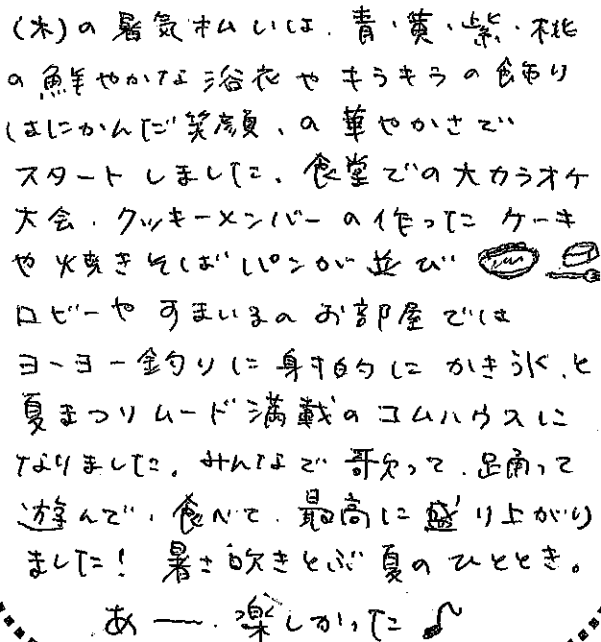 (木)の暑気払いは、青・黄・紫・桃
の鮮やかな浴衣やキラキラの飾り
はにかんだ笑顔、の華やかさで
スタートしました。食堂での大カラオケ
大会、クッキーメンバーの作ったケーキ
や焼きそばパンが並び
ロビーやすまいるのお部屋では
ヨーヨー釣りに射的にかき氷、と
夏まつりムード満載のコムハウスに
なりました。みんなで歌って、踊って
遊んで、食べて、最高に盛り上がり
ました!暑さ吹きとぶ夏のひととき。
あー、楽しかった♪